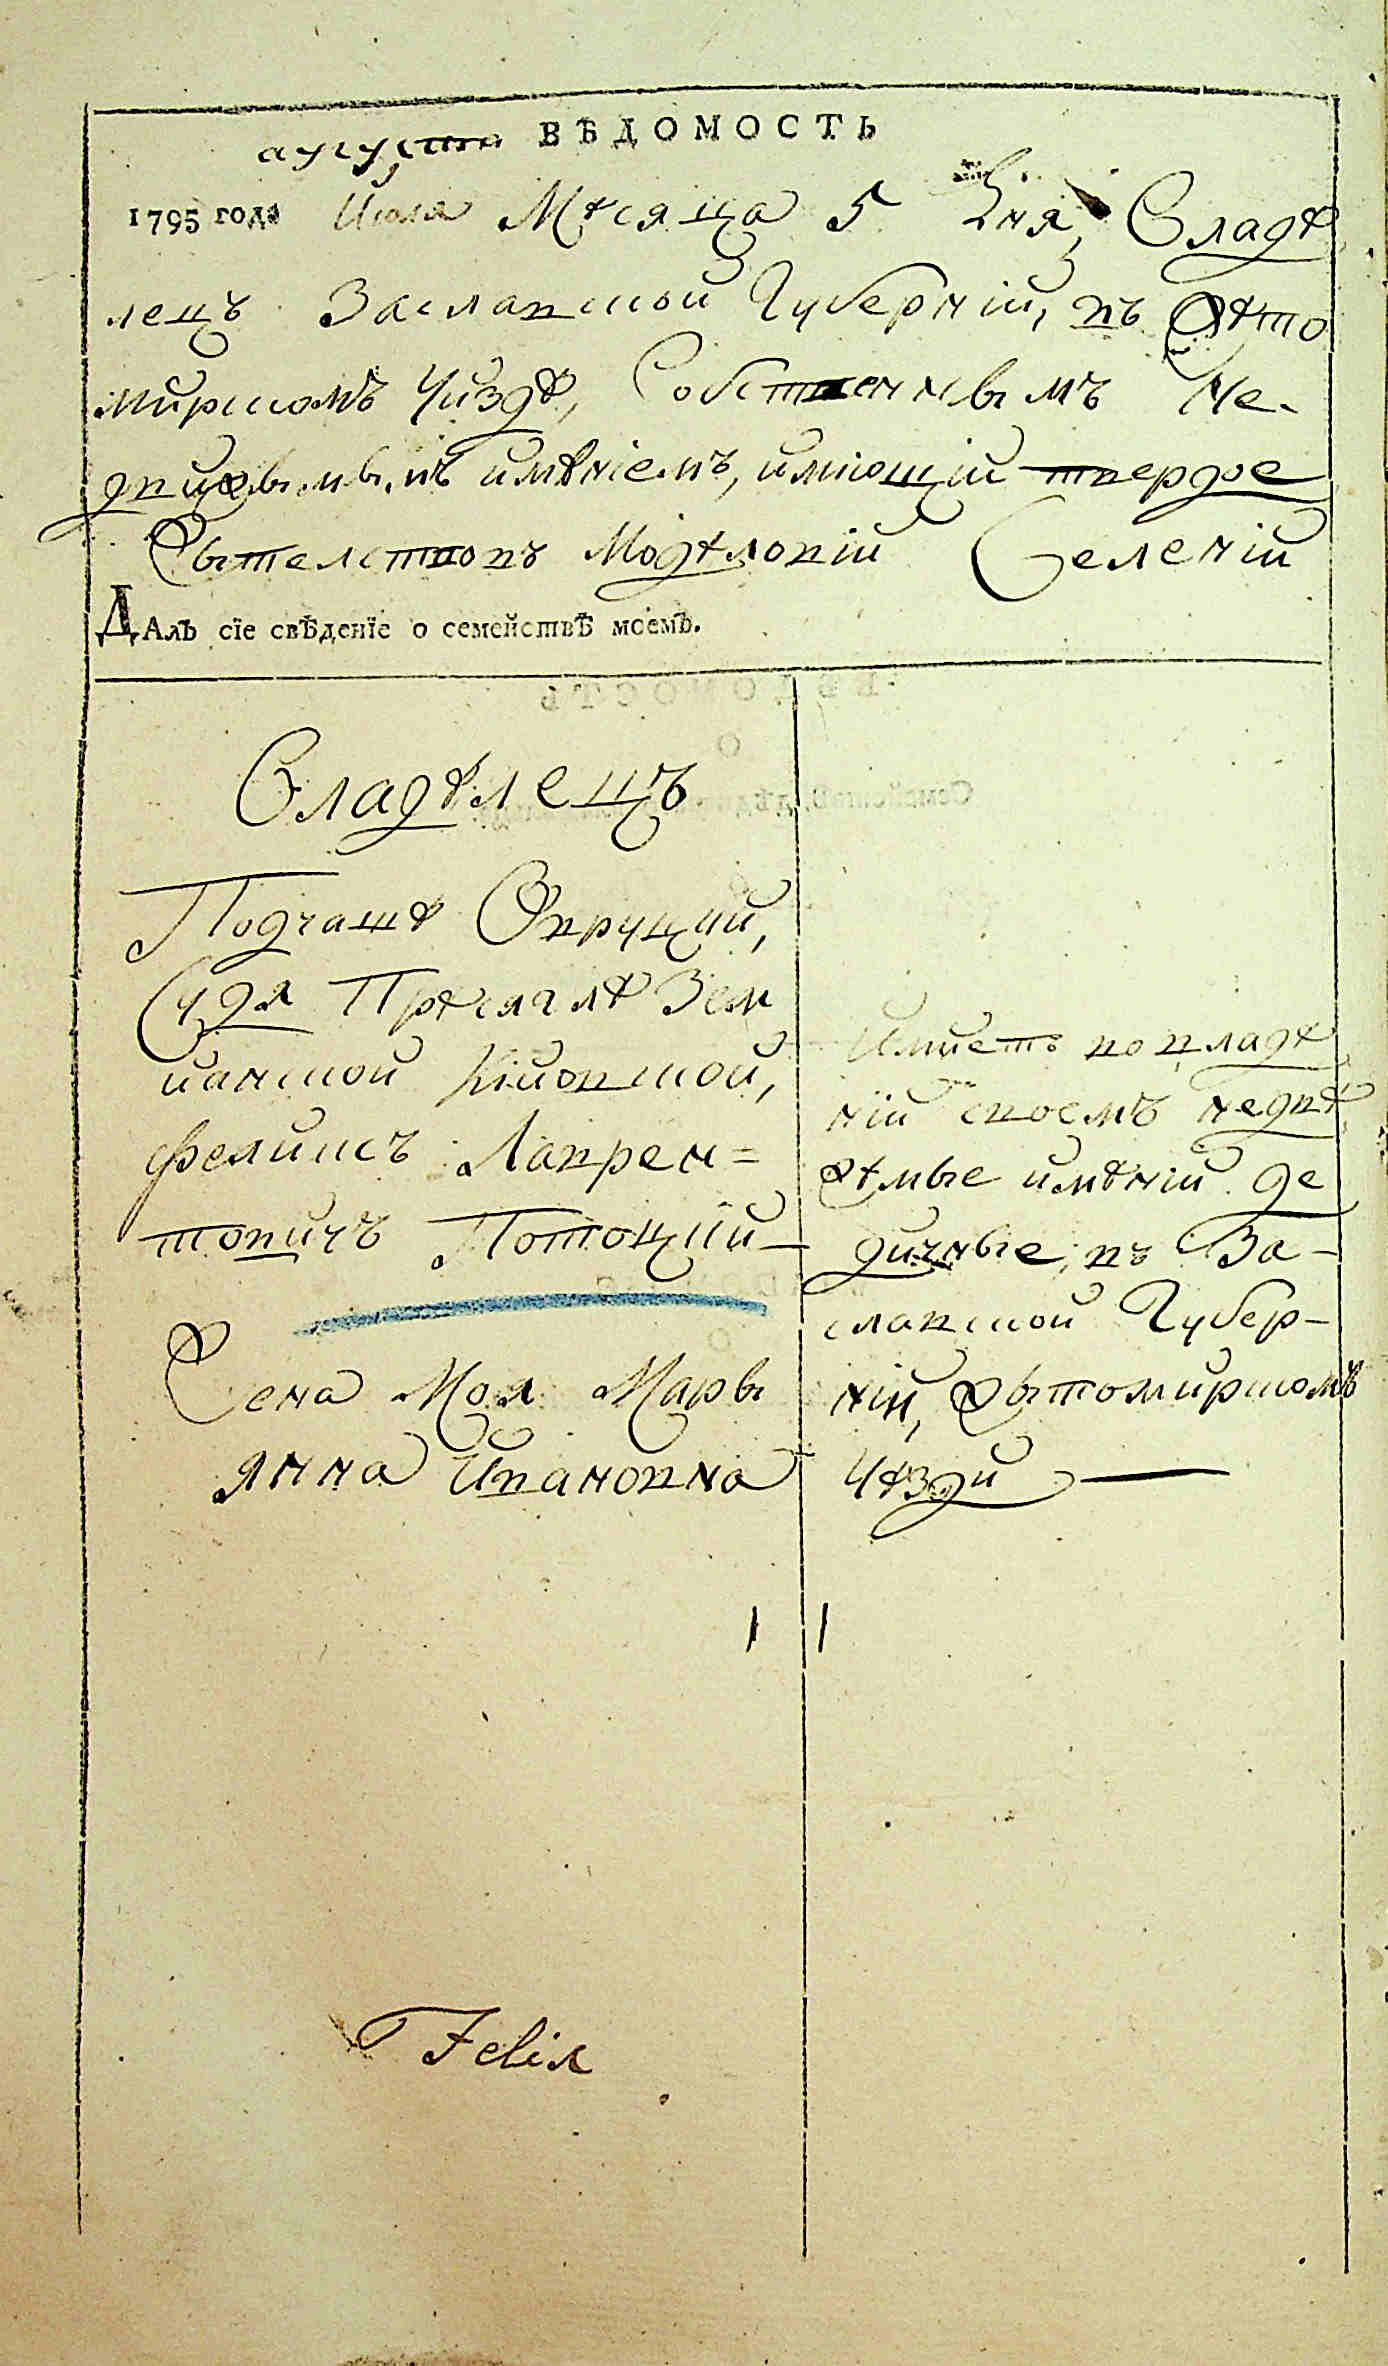 ВѢДОМОСТЬ
августа
1795 года Июля Мѣсяца 5 Дня, Владѣ
лецъ Заславской Губерніи, въ Жѣто
мирскомъ Уиздѣ, Собственнымъ Не-
движымымъ имѣніемъ, имиющіи твердое
Жытелство въ Модѣловіи Селеніи
Далъ сїе свѣденїе о семействѣ моемъ.
Владѣлецъ
Подчашѣ Овруцкій,
Судя Присягле Зем
йанской Кіиовской,
Феликсъ Лаврен=
товичъ Потоцкій
Жена Моя Мары
янна Йвановна
Имиетъ во владѣ
ніи своемъ недвѣ
жѣмые имѣніи де
дичные, въ За-
славской Губер-
ніи, Жытомирскомъ
Уѣзди
1 1
Felix